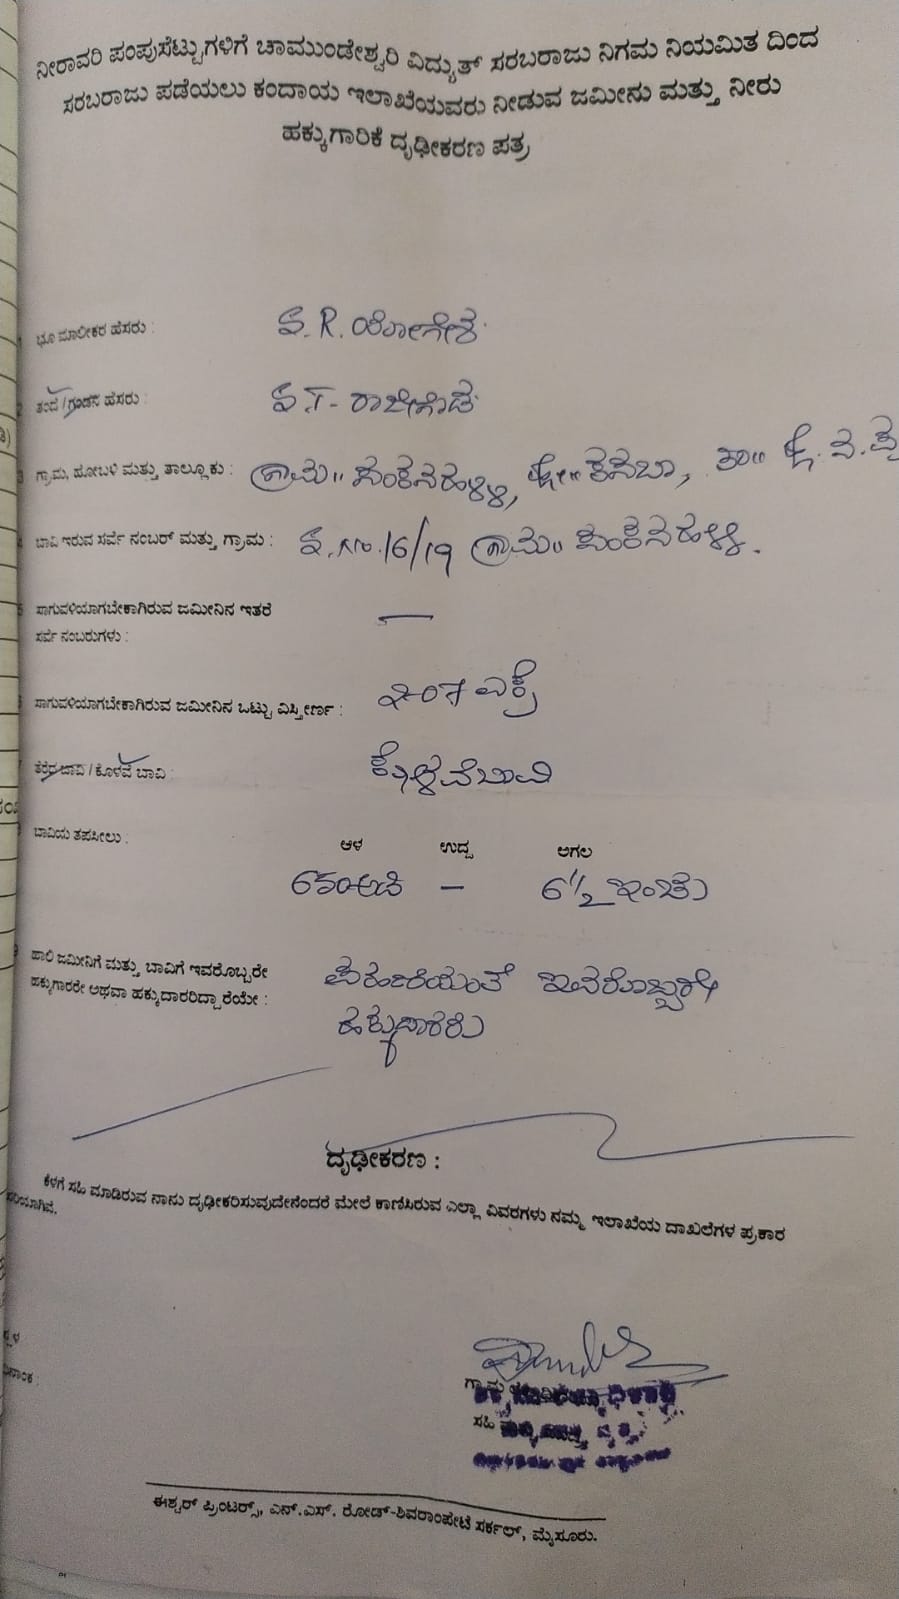 ನೀರಾವರಿ ಪಂಪುಸೆಟ್ಟುಗಳಿಗೆ ಚಾಮುಂಡೇಶ್ವರಿ ವಿದ್ಯುತ್ ಸರಬರಾಜು ನಿಗಮ ನಿಯಮಿತ ದಿಂದ
ಸರಬರಾಜು ಪಡೆಯಲು ಕಂದಾಯ ಇಲಾಖೆಯವರು ನೀಡುವ ಜಮೀನು ಮತ್ತು ನೀರು
ಹಕ್ಕುಗಾರಿಕೆ ದೃಢೀಕರಣ ಪತ್ರ
1 ಭೂ ಮಾಲೀಕರ ಹೆಸರು : R. ಯೋಗೇಶ
2 ತಂದೆ / ಗಂಡನ ಹೆಸರು : ರಾಜೇಗೌಡ
3 ಗ್ರಾಮ, ಹೋಬಳಿ ಮತ್ತು ತಾಲ್ಲೂಕು : ಗ್ರಾಮ॥ ಸಂಕನಹಳ್ಳಿ, ಹೋ॥ ಕಸಬಾ, ತಾ॥
4 ಬಾವಿ ಇರುವ ಸರ್ವೆ ನಂಬರ್ ಮತ್ತು ಗ್ರಾಮ : ಸ. ನಂ. 16/19 ಗ್ರಾಮ॥ ಸಂಕನಹಳ್ಳಿ.
5 ಸಾಗುವಳಿಯಾಗಬೇಕಾಗಿರುವ ಜಮೀನಿನ ಇತರೆ —
ಸರ್ವೆ ನಂಬರುಗಳು :
ಸಾಗುವಳಿಯಾಗಬೇಕಾಗಿರುವ ಜಮೀನಿನ ಒಟ್ಟು ವಿಸ್ತೀರ್ಣ : 2-07 ಎಕ್ರೆ
ತೆರೆದ ಬಾವಿ / ಕೊಳವೆ ಬಾವಿ : ಕೊಳವೆ ಬಾವಿ
ಬಾವಿಯ ತಪಸೀಲು :
ಆಳ ಉದ್ದ ಅಗಲ
650 ಅಡಿ — 6 1/2 ಇಂಚು
ಹಾಲಿ ಜಮೀನಿಗೆ ಮತ್ತು ಬಾವಿಗೆ ಇವರೊಬ್ಬರೇ ಪಹಣಿಯಂತೆ ಇವರೊಬ್ಬರೇ
ಹಕ್ಕುಗಾರರೇ ಅಥವಾ ಹಕ್ಕುದಾರರಿದ್ದಾರೆಯೇ : ಹಕ್ಕುದಾರರು
ದೃಢೀಕರಣ :
ಕೆಳಗೆ ಸಹಿ ಮಾಡಿರುವ ನಾನು ದೃಢೀಕರಿಸುವುದೇನೆಂದರೆ ಮೇಲೆ ಕಾಣಿಸಿರುವ ಎಲ್ಲಾ ವಿವರಗಳು ನಮ್ಮ ಇಲಾಖೆಯ ದಾಖಲೆಗಳ ಪ್ರಕಾರ
ಸರಿಯಾಗಿವೆ.
ಗ್ರಾಮ
ಸಹಿ
ಈಶ್ವರ್ ಪ್ರಿಂಟರ್ಸ್, ಎನ್.ಎಸ್. ರೋಡ್-ಶಿವರಾಂಪೇಟೆ ಸರ್ಕಲ್, ಮೈಸೂರು.